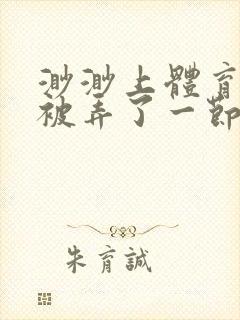 渺渺上體育
被弄了一節
朱育誠